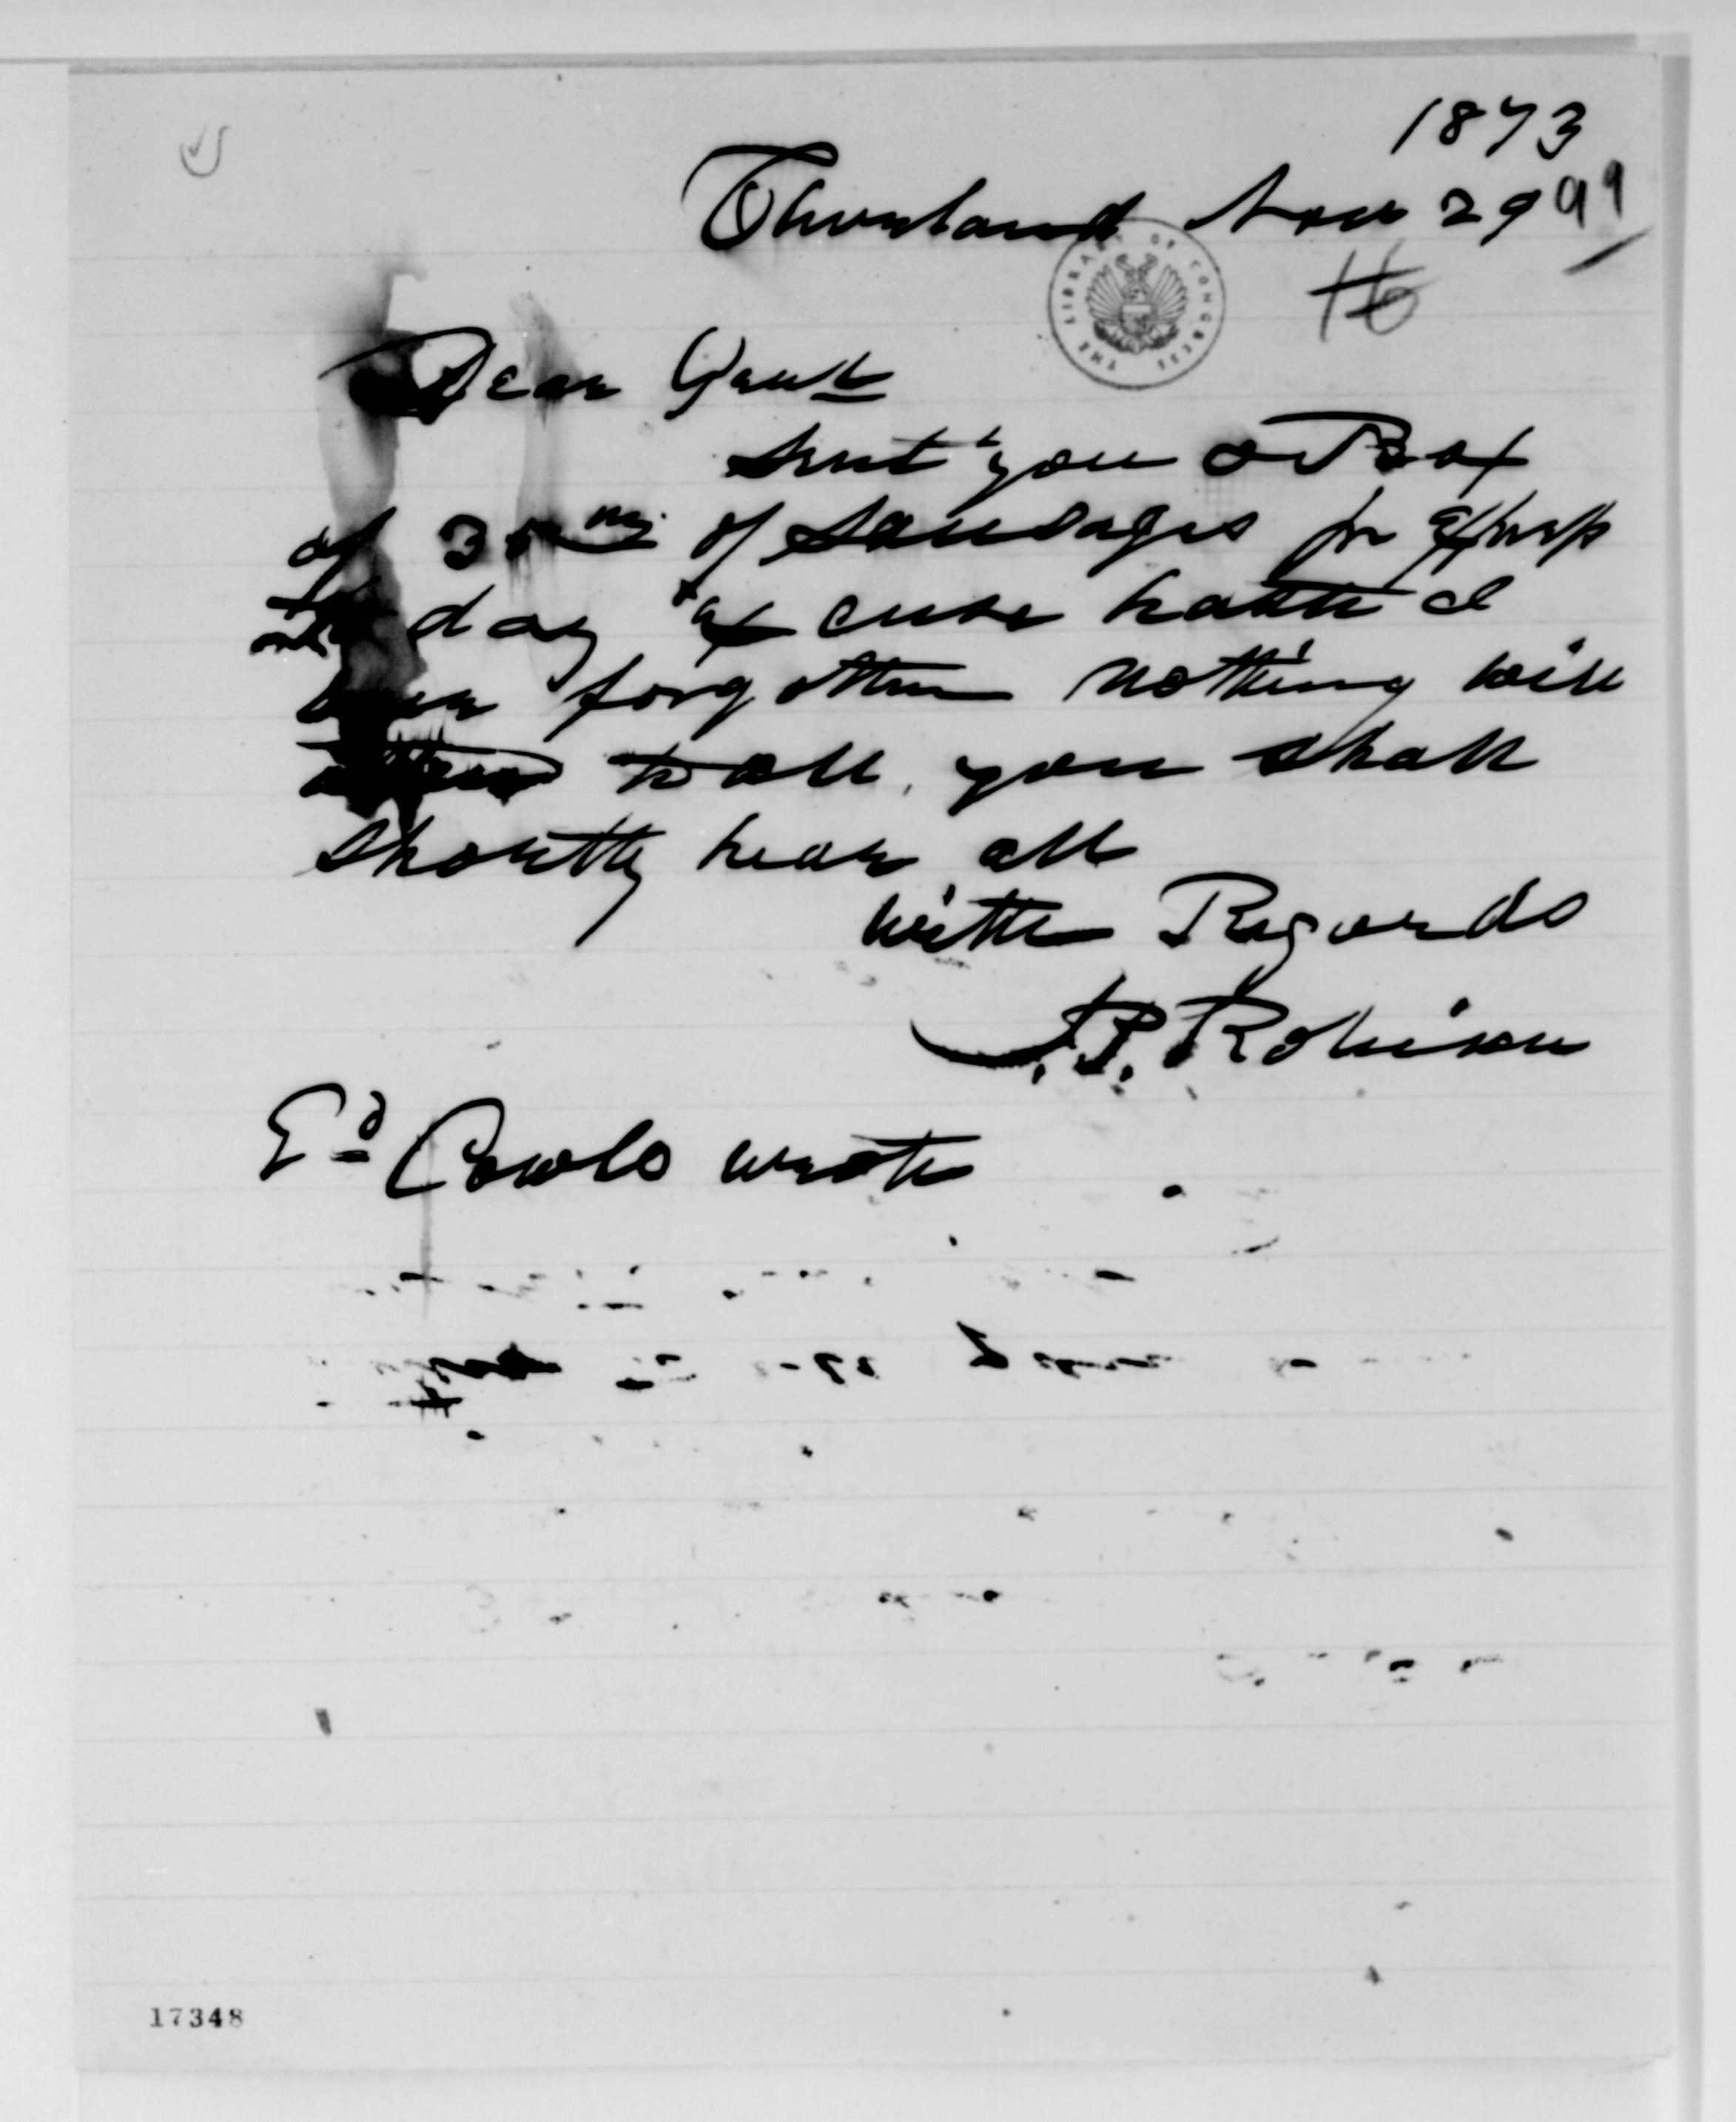 1873
Cleveland Nov 29 99
THE LIBRARY OF CONGRESS
Dear Genl
Sent you a Box
of 3 of Sausages
day cuse haste I
forgotten nothing will
to all, you shall
shortly hear all
with Regards
J. P. Robison
Ed Cowls wrote
17348